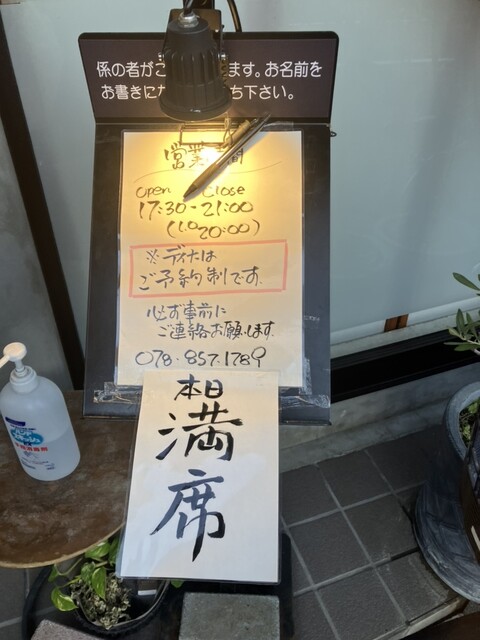 係の者がご ます。お名前を
お書きに ち下さい。
営業 間
open close
17:30-21:00
(L.O 20:00)
※ディナは
ご予約制です.
必ず事前に
ご連絡お願します.
078.857.1789
本日
満
席